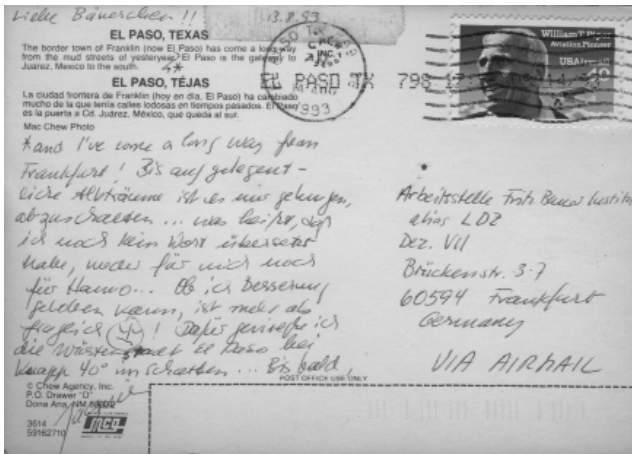 Liebe Bäuerchen!!
13.8.93
EL PASO, TEXAS
The border town of Franklin (now El Paso) has come a long way
from the mud streets of yesteryear. El Paso is the gateway to
Juarez, Mexico to the south.
EL PASO, TÉJAS
La ciudad frontera de Franklin (hoy en dia, El Paso) ha cambiado
mucho de la que tenía calles lodosas en tiempos pasados. El Paso
es la puerta a Cd. Juárez, México, que queda al sur.
Mac Chew Photo
*and I've come a long way from
Frankfurt! Bis auf gelegent-
liche Albträume ist es mir gelungen,
abzuschalten... was heißt, daß
ich noch kein Wort übersetzt
habe, weder für mich noch
für Hanno... Ob ich Besserung
geloben kann, ist mehr als
fraglich! Dafür genieße ich
die Wüstenstadt El Paso bei
knapp 40° im Schatten... Bis bald,
© Chew Agency, Inc.
P.O. Drawer "D"
Dona Ana, NM
3614
59182710
mcg
POST OFFICE USE ONLY
EL PASO TX 798
1993
William T. Piper
Aviation Pioneer
USAirmail
40
Arbeitsstelle Fritz Bauer Institut
alias LDZ
Dez. VII
Brückenstr. 3-7
60594 Frankfurt
Germany
VIA AIRMAIL